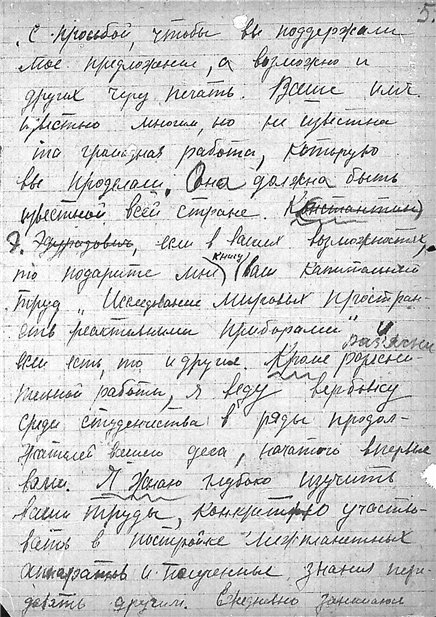 5.
с просьбой, чтобы вы поддержали
мое предложение, а возможно и
других через печать. Ваше имя
известно многим, но не известна
та громадная работа, которую
вы проделали. Она должна быть
известной всей стране. Константин
Э. Эдуардович, если в ваших возможностях,
то подарите мне книгу (ваш капитальный
труд „Исследование мировых простран-
ств реактивными приборами"
если есть, то и другие. Кроме
тельной работы, я веду вербовку
среди студенчества в ряды продол-
жателей вашего дела, начатого впервые
вами. Я желаю глубоко изучить
ваши труды, конкретно участво-
вать в постройке межпланетных
аппаратов и полученные знания пере-
давать другим. Ежедневно занимаюсь